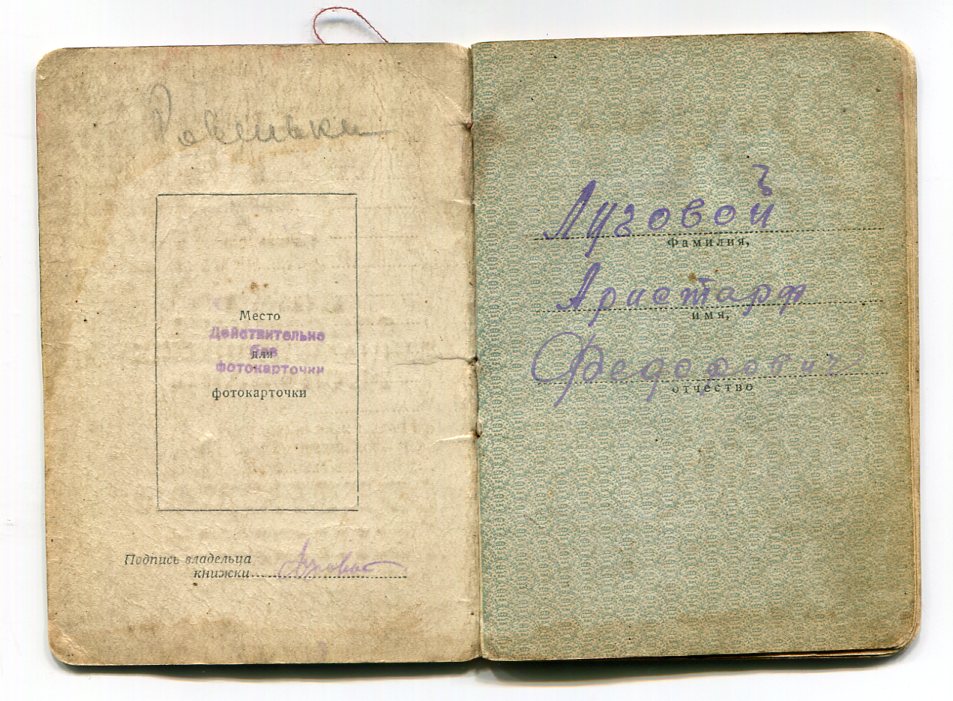 Ровеньки
Место
Действительно
без
для
фотокарточки
фотокарточки
Подпись владельца
книжки Луговой
Луговой
Фамилия,
Аристарх
имя,
Федорович
отчество